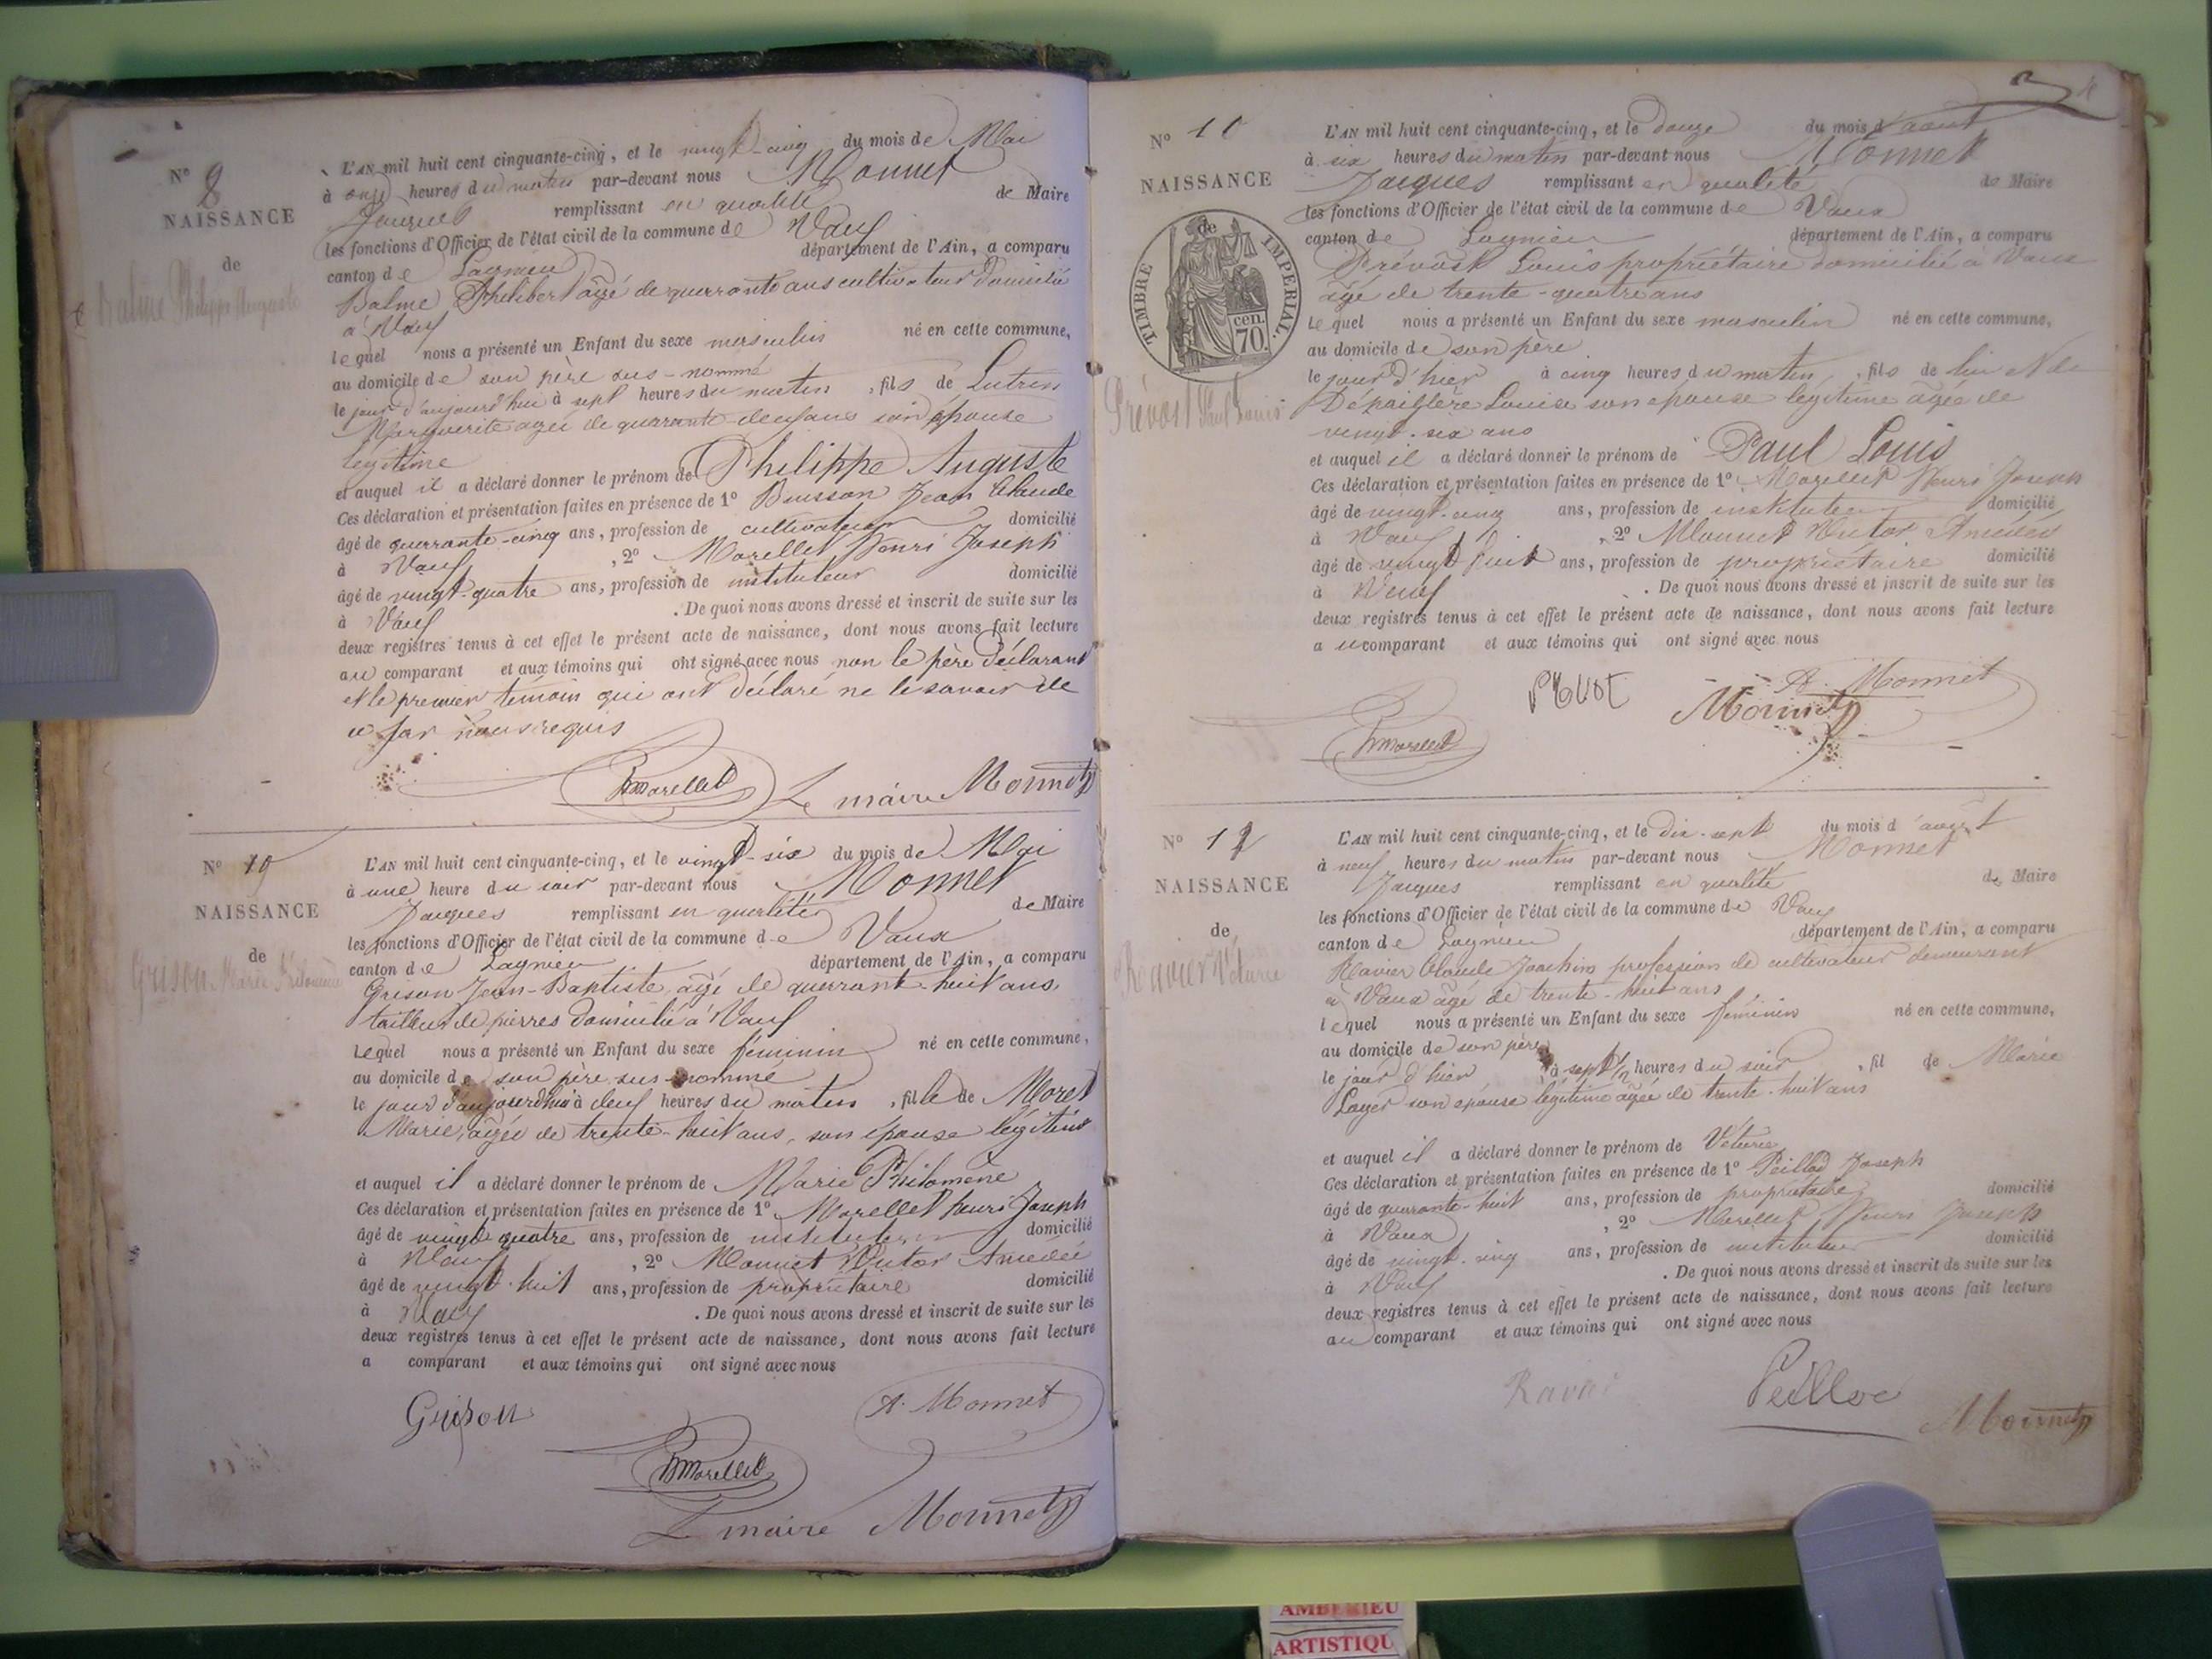 N° 8
NAISSANCE
de
Balme Philippe Auguste
L'AN mil huit cent cinquante-cinq, et le vingt-cinq du mois de Mai
à onze heures du matin par-devant nous Monnet
Jacques remplissant en qualité de Maire
les fonctions d'Officier de l'état civil de la commune de Vaux
canton de Lagnieu département de l'Ain, a comparu
Balme Philibert âgé de quarante ans cultivateur domicilié
à Vaux
lequel nous a présenté un Enfant du sexe masculin né en cette commune,
au domicile de son père sus-nommé
le jour d'aujourd'hui à sept heures du matin, fils de Lutrin
Marguerite agée de quarante-deux ans son épouse
légitime
et auquel il a déclaré donner le prénom de Philippe Auguste
Ces déclaration et présentation faites en présence de 1° Buisson Jean Claude
âgé de quarante-cinq ans, profession de cultivateur domicilié
à Vaux, 2° Marellet Henri Joseph
âgé de vingt-quatre ans, profession de instituteur domicilié
à Vaux. De quoi nous avons dressé et inscrit de suite sur les
deux registres tenus à cet effet le présent acte de naissance, dont nous avons fait lecture
au comparant et aux témoins qui ont signé avec nous non le père déclarant
et le premier témoin qui ont déclaré ne le savoir de
ce par nous requis
hmarellet Le maire Monnet
N° 19
NAISSANCE
de
Grison Marie Philomène
L'AN mil huit cent cinquante-cinq, et le vingt-six du mois de Mai
à une heure du soir par-devant nous Monnet
Jacques remplissant en qualité de Maire
les fonctions d'Officier de l'état civil de la commune de Vaux
canton de Lagnieu département de l'Ain, a comparu
Grison Jean-Baptiste, âgé de quarante-huit ans,
tailleur de pierres domicilié à Vaux
Lequel nous a présenté un Enfant du sexe féminin né en cette commune,
au domicile de son père sus-nommé
le jour d'aujourd'hui à deux heures du matin, fille de Moret
Marie, âgée de trente-huit ans, son épouse légitime
et auquel il a déclaré donner le prénom de Marie Philomène
Ces déclaration et présentation faites en présence de 1° Marellet henri Joseph
âgé de vingt quatre ans, profession de instituteur domicilié
à Vaux, 2° Monnet Victor Amédée
âgé de vingt-huit ans, profession de propriétaire domicilié
à Vaux. De quoi nous avons dressé et inscrit de suite sur les
deux registres tenus à cet effet le présent acte de naissance, dont nous avons fait lecture
a comparant et aux témoins qui ont signé avec nous
Grison A. Monnet
hmarellet
Le maire Monnet
N° 10
NAISSANCE
de
TIMBRE IMPERIAL.
70. cen.
Prévost Paul Louis
L'AN mil huit cent cinquante-cinq, et le douze du mois d'août
à six heures du matin par-devant nous Monnet
Jacques remplissant en qualité de Maire
les fonctions d'Officier de l'état civil de la commune de Vaux
canton de Lagnieu département de l'Ain, a comparu
Prévost Louis propriétaire domicilié à Vaux
âgé de trente-quatre ans
Lequel nous a présenté un Enfant du sexe masculin né en cette commune,
au domicile de son père
le jour d'hier à cinq heures du matin, fils de lui et de
Louise son épouse légitime âgée de
vingt-six ans
et auquel il a déclaré donner le prénom de Paul Louis
Ces déclaration et présentation faites en présence de 1° Marellet Henri Joseph
âgé de vingt-cinq ans, profession de instituteur domicilié
à Vaux, 2° Monnet Victor Amédée
âgé de vingt huit ans, profession de propriétaire domicilié
à Vaux. De quoi nous avons dressé et inscrit de suite sur les
deux registres tenus à cet effet le présent acte de naissance, dont nous avons fait lecture
au comparant et aux témoins qui ont signé avec nous
A. Monnet
Monnet
hmarellet
N° 12
NAISSANCE
de
Ravier Véturie
L'AN mil huit cent cinquante-cinq, et le dix-sept du mois d'août
à neuf heures du matin par-devant nous Monnet
Jacques remplissant en qualité de Maire
les fonctions d'Officier de l'état civil de la commune de Vaux
canton de Lagnieu département de l'Ain, a comparu
Ravier Claude Joachim profession de cultivateur demeurant
à Vaux âgé de trente-huit ans
lequel nous a présenté un Enfant du sexe féminin né en cette commune,
au domicile de son père
le jour d'hier à sept 1/2 heures du soir, fil de Marie
Layer son épouse légitime âgée de trente-huit ans
et auquel il a déclaré donner le prénom de Véturie
Ces déclaration et présentation faites en présence de 1° Peillod Joseph
âgé de quarante-huit ans, profession de propriétaire domicilié
à Vaux, 2° Marellet Henri Joseph
âgé de vingt-cinq ans, profession de instituteur domicilié
à Vaux. De quoi nous avons dressé et inscrit de suite sur les
deux registres tenus à cet effet le présent acte de naissance, dont nous avons fait lecture
au comparant et aux témoins qui ont signé avec nous
Ravier Peilloc
Monnet
AMBERIEU
ARTISTIQU